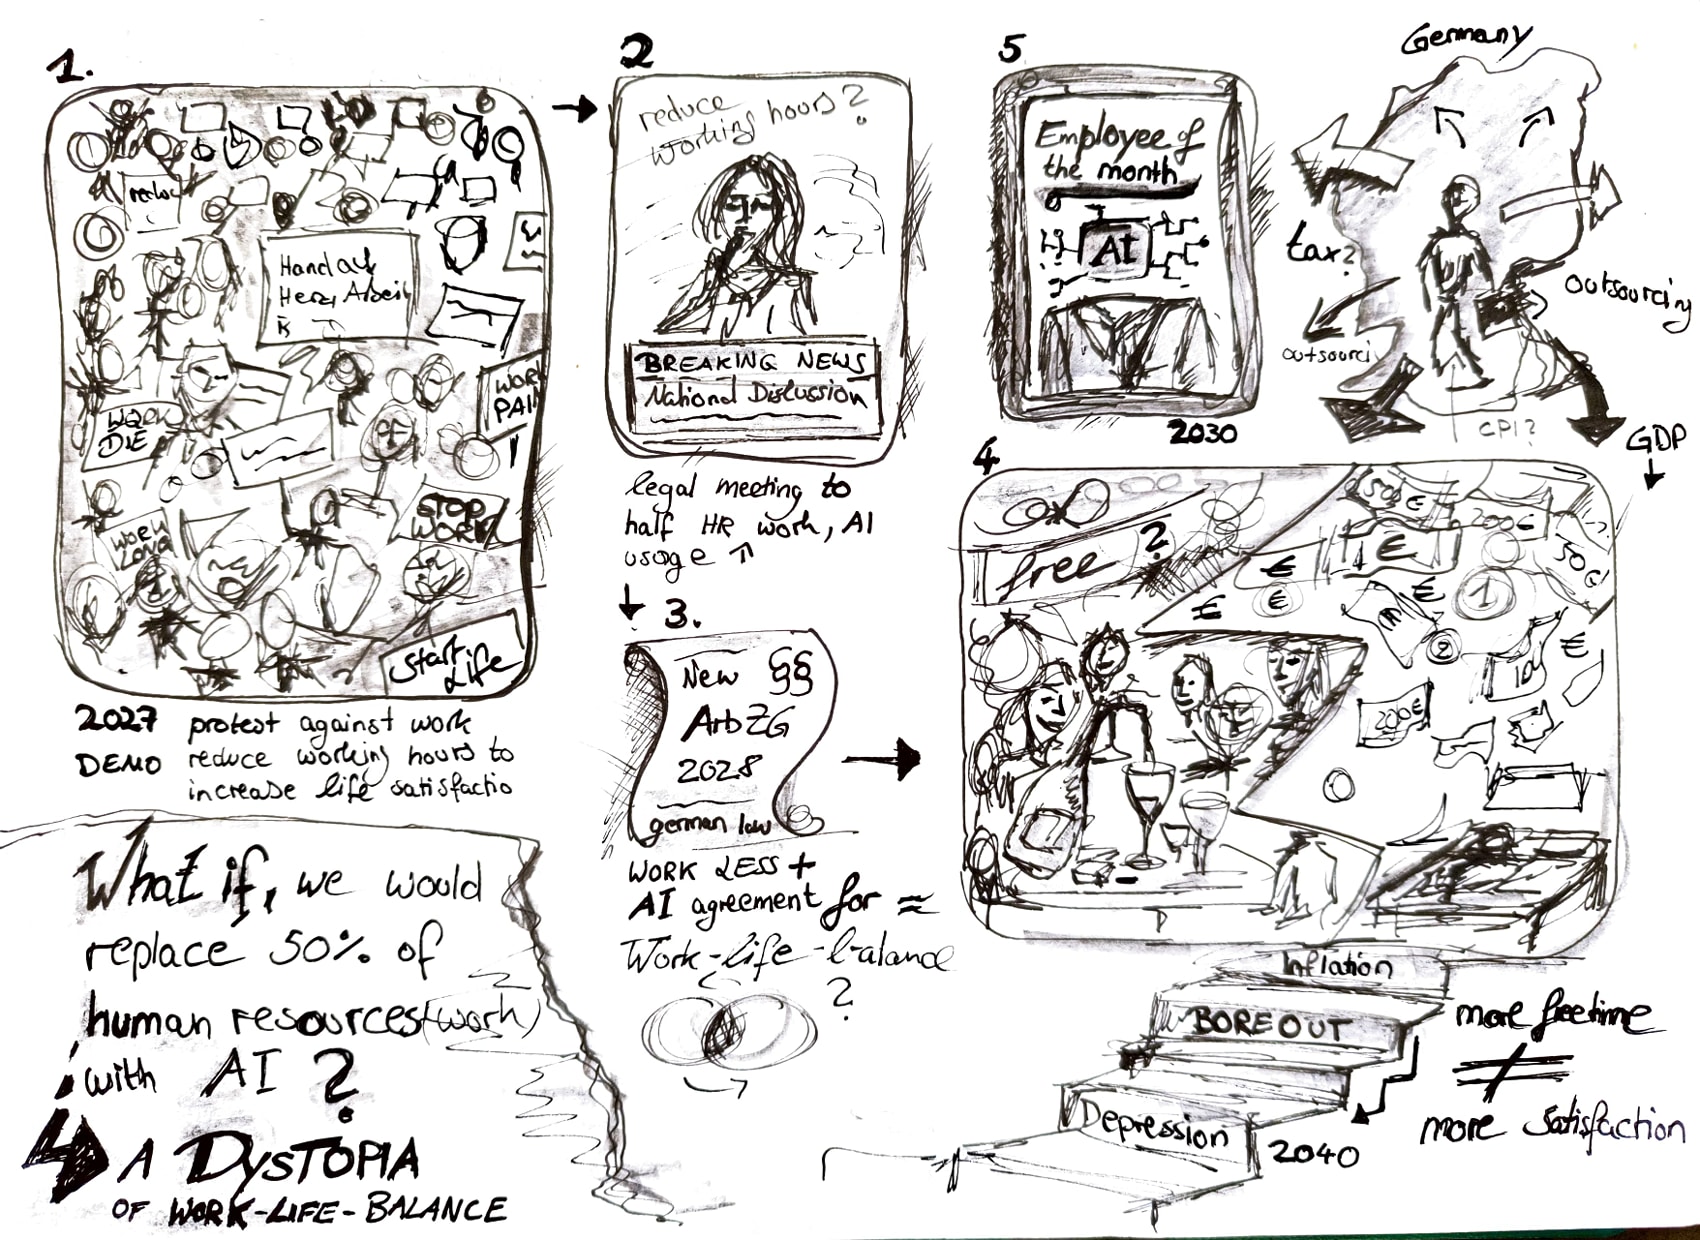 1.
reduc
Hand auf
Herz, Arbeit
is
WORK
DIE
WORK
PAIN
STOP
WORK
WORK
LONG
Start
Life
2027 protest against work
DEMO reduce working hours to
increase life satisfactio
What if, we would
replace 50% of
human resources (work)
with AI ?
A DYSTOPIA
OF WORK-LIFE-BALANCE
2
reduce
working hours?
BREAKING NEWS
National Discussion
legal meeting to
half HR work, AI
usage ↑
3.
New §§
ArbZG
2028
german law
WORK LESS +
AI agreement for ≈
Work-life-balance
?
5
Employee of
the month
AI
2030
Germany
tax?
outsourcing
outsourci
CPI?
GDP
4
free ?
50€
200€
€
50€
€
€
€
€
1
2
€
10
200€
Inflation
BOREOUT
Depression
2040
more freetime
≠
more satisfaction